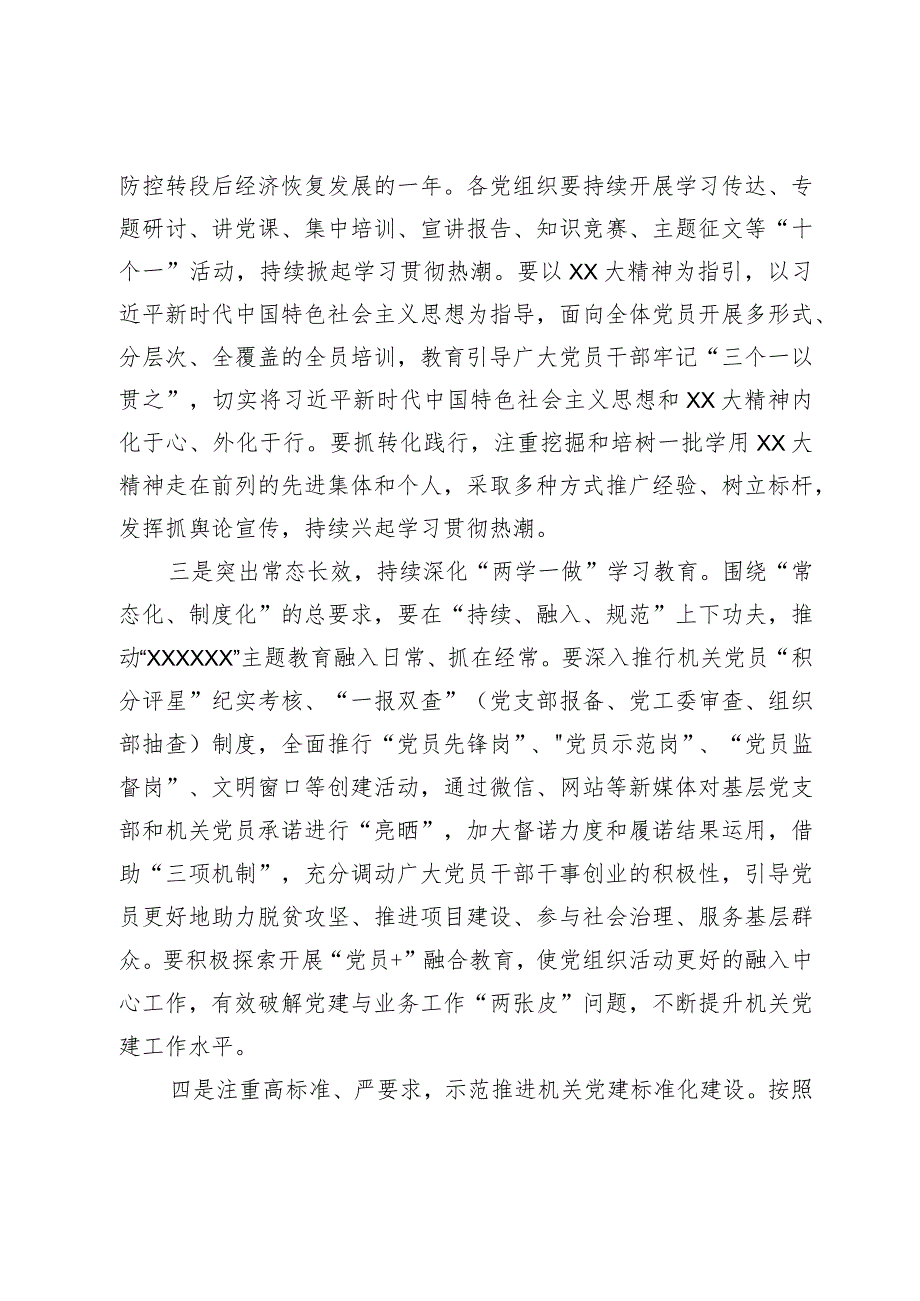 防控转段后经济恢复发展的一年。各党组织要持续开展学习传达、专
题研讨、讲党课、集中培训、宣讲报告、知识竞赛、主题征文等“十
个一”活动，持续掀起学习贯彻热潮。要以 XX 大精神为指引，以习
近平新时代中国特色社会主义思想为指导，面向全体党员开展多形式、
分层次、全覆盖的全员培训，教育引导广大党员干部牢记“三个一以
贯之”，切实将习近平新时代中国特色社会主义思想和 XX 大精神内
化于心、外化于行。要抓转化践行，注重挖掘和培树一批学用 XX 大
精神走在前列的先进集体和个人，采取多种方式推广经验、树立标杆，
发挥抓舆论宣传，持续兴起学习贯彻热潮。
三是突出常态长效，持续深化“两学一做”学习教育。围绕“常
态化、制度化”的总要求，要在“持续、融入、规范”上下功夫，推
动“XXXXXX”主题教育融入日常、抓在经常。要深入推行机关党员“积
分评星”纪实考核、“一报双查”（党支部报备、党工委审查、组织
部抽查）制度，全面推行“党员先锋岗”、"党员示范岗”、“党员监
督岗”、文明窗口等创建活动，通过微信、网站等新媒体对基层党支
部和机关党员承诺进行“亮晒”，加大督诺力度和履诺结果运用，借
助“三项机制”，充分调动广大党员干部干事创业的积极性，引导党
员更好地助力脱贫攻坚、推进项目建设、参与社会治理、服务基层群
众。要积极探索开展“党员+”融合教育，使党组织活动更好的融入中
心工作，有效破解党建与业务工作“两张皮”问题，不断提升机关党
建工作水平。
四是注重高标准、严要求，示范推进机关党建标准化建设。按照